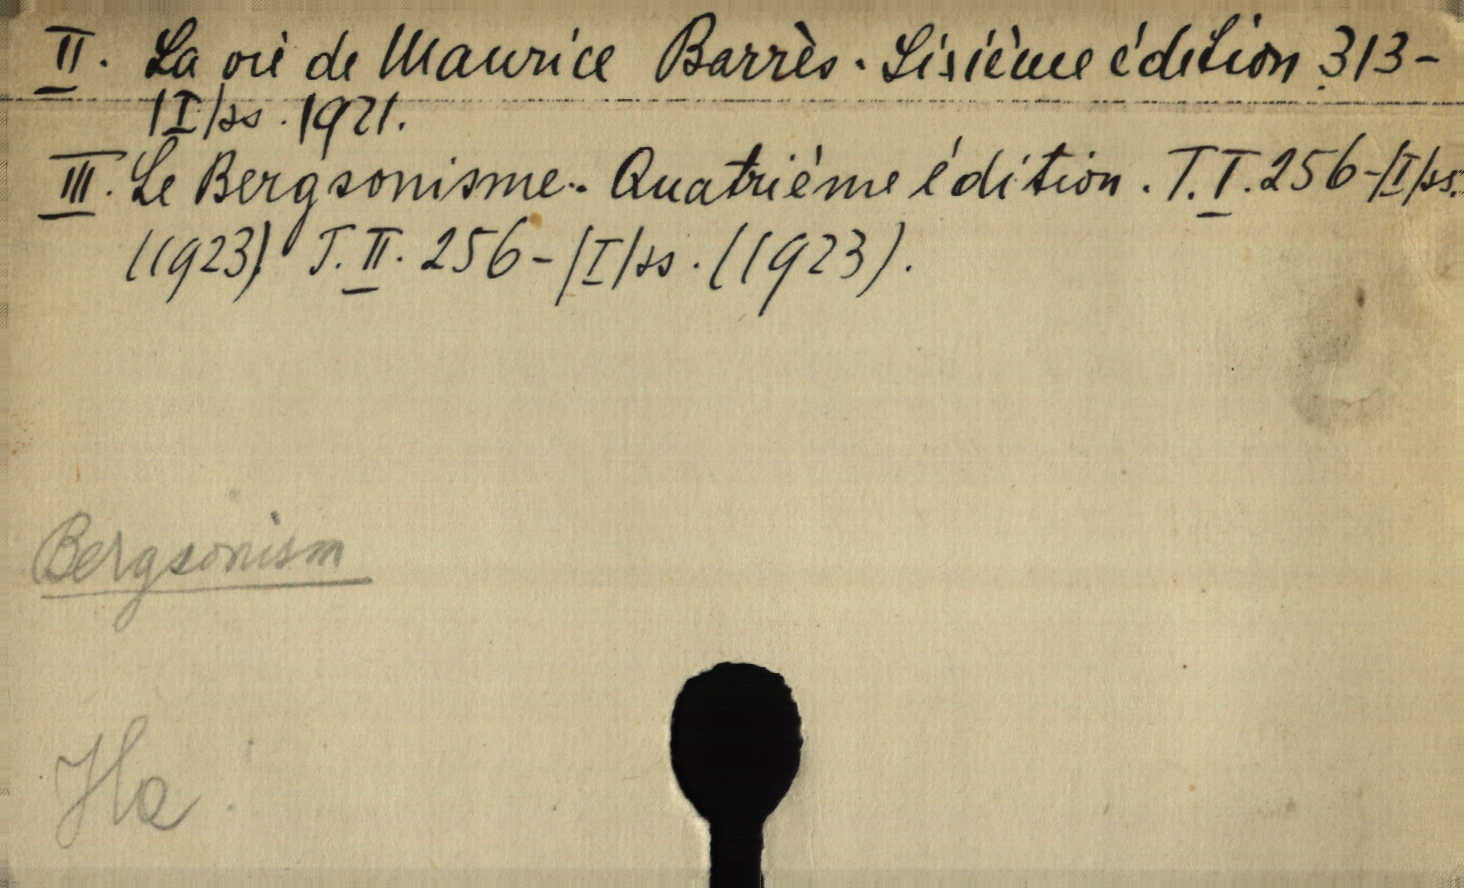 II. La vie de Maurice Barrès. Sisième édition 313-
|I|ss. 1921.
III. Le Bergsonisme. Quatriéme édition. T. I. 256-|I|ss.
(1923). T. II. 256-|I|ss. (1923).
Bergsonism
Ha.